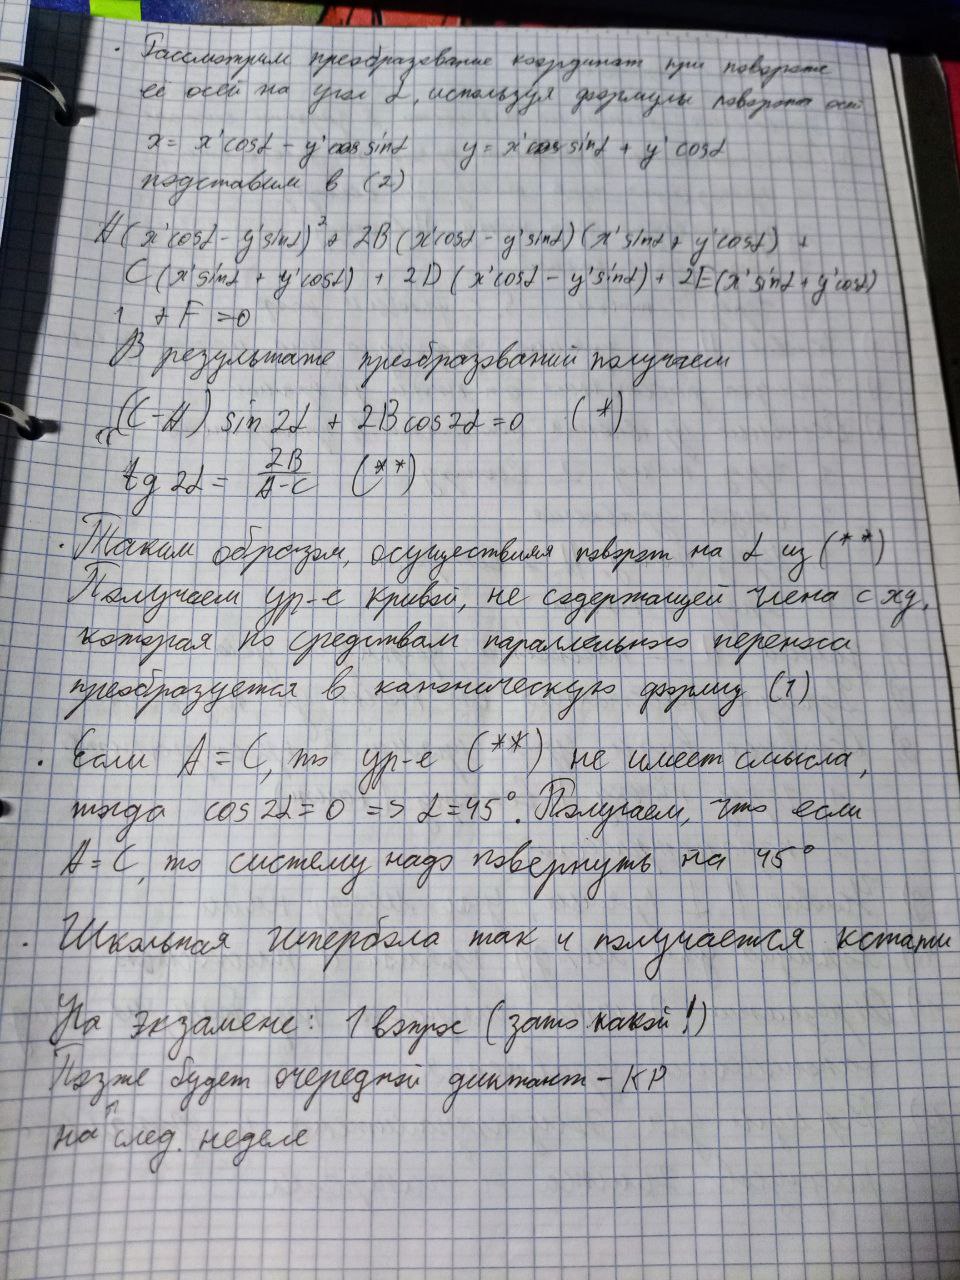 · Рассмотрим преобразование координат при повороте
её осей на угол α, используя формулы поворота оси
x = x'cosα - y' sinα y = x' sinα + y' cosα
подставим в (2)
A(x'cosα - y'sinα)² + 2B(x'cosα - y'sinα)(x'sinα + y'cosα) +
C(x'sinα + y'cosα) + 2D(x'cosα - y'sinα) + 2E(x'sinα + y'cosα)
+ F = 0
В результате преобразований получаем
(C-A) sin2α + 2Bcos2α = 0 (*)
tg 2α = 2B/A-C (**)
· Таким образом, осуществляя поворот на α из (**)
Получаем ур-е кривой, не содержащей члена с xy,
которая по средствам параллельного переноса
преобразуется в каноническую форму (1)
· Если A = C, то ур-е (**) не имеет смысла,
тогда cos2α = 0 => α = 45°. Получаем, что если
A = C, то систему надо повернуть на 45°
· Школьная гипербола так и получается кстати
На экзамене: 1 вопрос (зато какой!)
Позже будет очередной диктант - КР
на след. неделе